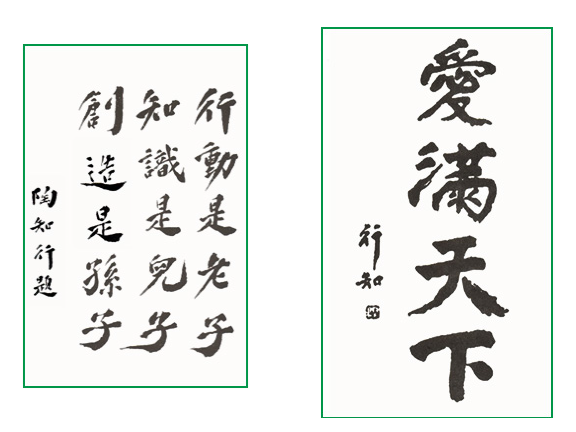 行動是老子
知識是兒子
創造是孫子
陶知行題
愛滿天下
行知